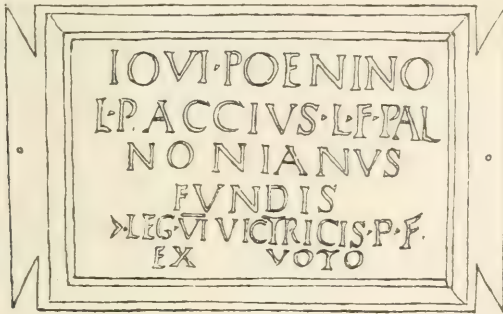 IOVI·POENINO
L·P·ACCIVS·L·F·PAL
NONIANVS
FVNDIS
>·LEG·VI VICTRICIS·P·F·
EX VOTO